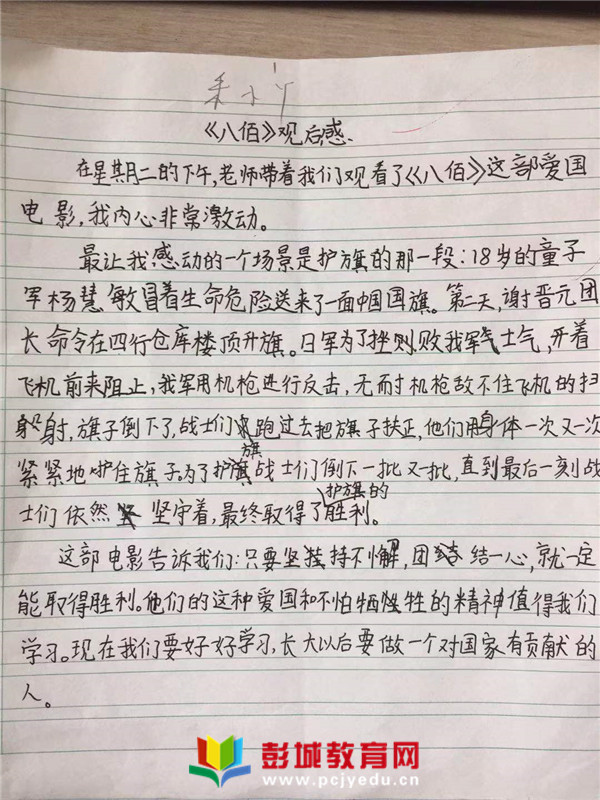 《八佰》观后感
在星期二的下午,老师带着我们观看了《八佰》这部爱国
电影,我内心非常激动。
最让我感动的一个场景是护旗的那一段:18岁的童子
军杨慧敏冒着生命危险送来了一面中国国旗。第二天,谢晋元团
长命令在四行仓库楼顶升旗。日军为了挫败我军士气,开着
飞机前来阻止,我军用机枪进行反击,无奈机枪敌不住飞机的扫
射,旗子倒下了,战士们跑过去把旗子扶正,他们用身体一次又一次
紧紧地护住旗子。为了护旗战士们倒下一批又一批,直到最后一刻战
士们依然坚守着,最终取得了护旗的胜利。
这部电影告诉我们:只要坚持不懈,团结一心,就一定
能取得胜利。他们的这种爱国和不怕牺牲的精神值得我们
学习。现在我们要好好学习,长大以后要做一个对国家有贡献的
人。
彭城教育网
www.pcjyedu.cn